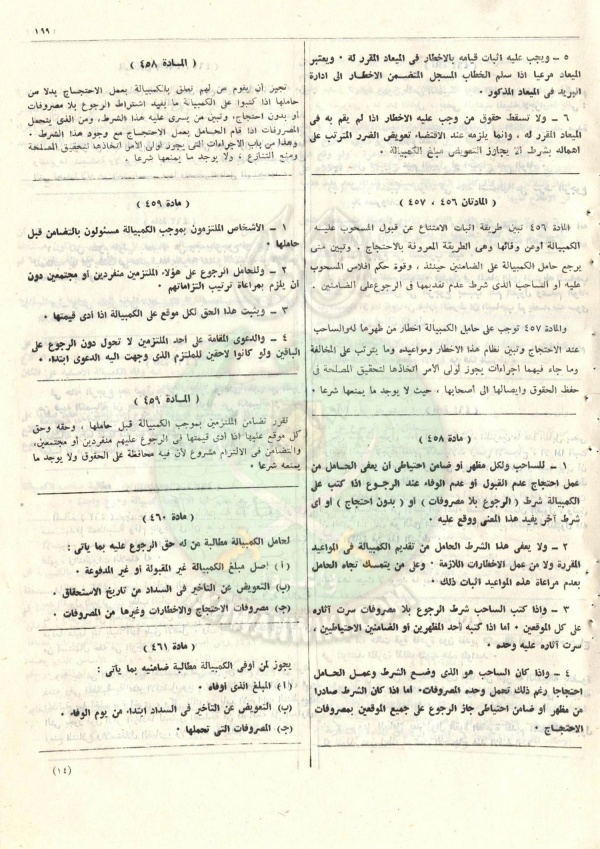 ١٦٩
٥ – ويجب عليه اثبات قيامه بالاخطار في الميعاد المقرر له ٠ ويعتبر
الميعاد مرعيا اذا سلم الخطاب المسجل المتضمن الاخطار الى ادارة
البريد في الميعاد المذكور ٠
٦ – ولا تسقط حقوق من وجب عليه الاخطار اذا لم يقم به في
الميعاد المقرر له ، وانما يلزمه عند الاقتضاء تعويض الضرر المترتب على
اهماله بشرط ألا يجاوز التعويض مبلغ الكمبيالة ٠
( المادتان ٤٥٦ ، ٤٥٧ )
المادة ٤٥٦ تبين طريقة اثبات الامتناع عن قبول المسحوب عليه
الكمبيالة أوعن وفائها وهى الطريقة المعروفة بالاحتجاج ٠ وتبين متى
يرجع حامل الكمبيالة على الضامنين حينئذ ، وقوة حكم افلاس المسحوب
عليه أو الساحب الذى شرط عدم تقديمها في الرجوع على الضامنين ٠
والمادة ٤٥٧ توجب على حامل الكمبيالة اخطار من ظهرها له والساحب
عند الاحتجاج وتبين نظام هذا الاخطار ومواعيده وما يترتب على المخالفة
وما جاء فيهما اجراءات يجوز لولى الأمر اتخاذها لتحقيق المصلحة في
حفظ الحقوق وايصالها الى أصحابها ، حيث لا يوجد ما يمنعها شرعا ٠
( مادة ٤٥٨ )
١ – للساحب ولكل مظهر أو ضامن احتياطى أن يعفى الحامل من
عمل احتجاج عدم القبول أو عدم الوفاء عند الرجوع اذا كتب على
الكمبيالة شرط ( الرجوع بلا مصروفات ) أو ( بدون احتجاج ) أو أى
شرط آخر يفيد هذا المعنى ووقع عليه ٠
٢ – ولا يعفى هذا الشرط الحامل من تقديم الكمبيالة في المواعيد
المقررة ولا من عمل الاخطارات اللازمة ٠ وعلى من يتمسك تجاه الحامل
بعدم مراعاة هذه المواعيد اثبات ذلك ٠
٣ – واذا كتب الساحب شرط الرجوع بلا مصروفات سرت آثاره
على كل الموقعين ٠ أما اذا كتبه أحد المظهرين أو الضامنين الاحتياطيين ،
سرت آثاره عليه وحده ٠
٤ – واذا كان الساحب هو الذى وضع الشرط وعمل الحامل
احتجاجا رغم ذلك تحمل وحده المصروفات، أما اذا كان الشرط صادرا
من مظهر أو ضامن احتياطى جاز الرجوع على جميع الموقعين بمصروفات
الاحتجاج ٠
( المادة ٤٥٨ )
تجيز أن يقوم من لهم تعلق بالكمبيالة بعمل الاحتجاج بدلا من
حاملها اذا كتبوا على الكمبيالة ما يفيد اشتراط الرجوع بلا مصروفات
أو بدون احتجاج، وتبين من يسرى عليه هذا الشرط، ومن الذى يتحمل
المصروفات اذا قام الحامل بعمل الاحتجاج مع وجود هذا الشرط ٠
وهذا من باب الاجراءات التى يجوز لولى الأمر اتخاذها لتحقيق المصلحة
ومنع التنازع ، ولا يوجد ما يمنعها شرعا ٠
( مادة ٤٥٩ )
١ – الأشخاص الملتزمون بموجب الكمبيالة مسئولون بالتضامن قبل
حاملها ٠
٢ – وللحامل الرجوع على هؤلاء الملتزمين منفردين أو مجتمعين دون
أن يلزم بمراعاة ترتيب التزاماتهم ٠
٣ – ويثبت هذا الحق لكل موقع على الكمبيالة اذا أدى قيمتها ٠
٤ – والدعوى المقامة على أحد الملتزمين لا تحول دون الرجوع على
الباقين ولو كانوا لاحقين للملتزم الذى وجهت اليه الدعوى ابتداء ٠
( المادة ٤٥٩ )
تقرر تضامن الملتزمين بموجب الكمبيالة قبل حاملها ، وحقه وحق
كل موقع عليها اذا أدى قيمتها في الرجوع عليهم منفردين أو مجتمعين،
والتضامن في الالتزام مشروع لأن فيه محافظة على الحقوق ولا يوجد ما
يمنعه شرعا ٠
( مادة ٤٦٠ )
لحامل الكمبيالة مطالبة من له حق الرجوع عليه بما يأتى :
( أ ) أصل مبلغ الكمبيالة غير المقبولة أو غير المدفوعة ٠
(ب) التعويض عن التأخير في السداد من تاريخ الاستحقاق ٠
(جـ) مصروفات الاحتجاج والاخطارات وغيرها من المصروفات ٠
( مادة ٤٦١ )
يجوز لمن أوفى الكمبيالة مطالبة ضامنيه بما يأتى :
( أ ) المبلغ الذى أوفاه ٠
(ب) التعويض عن التأخير في السداد ابتداء من يوم الوفاء ٠
(جـ) المصروفات التى تحملها ٠
(١٤)